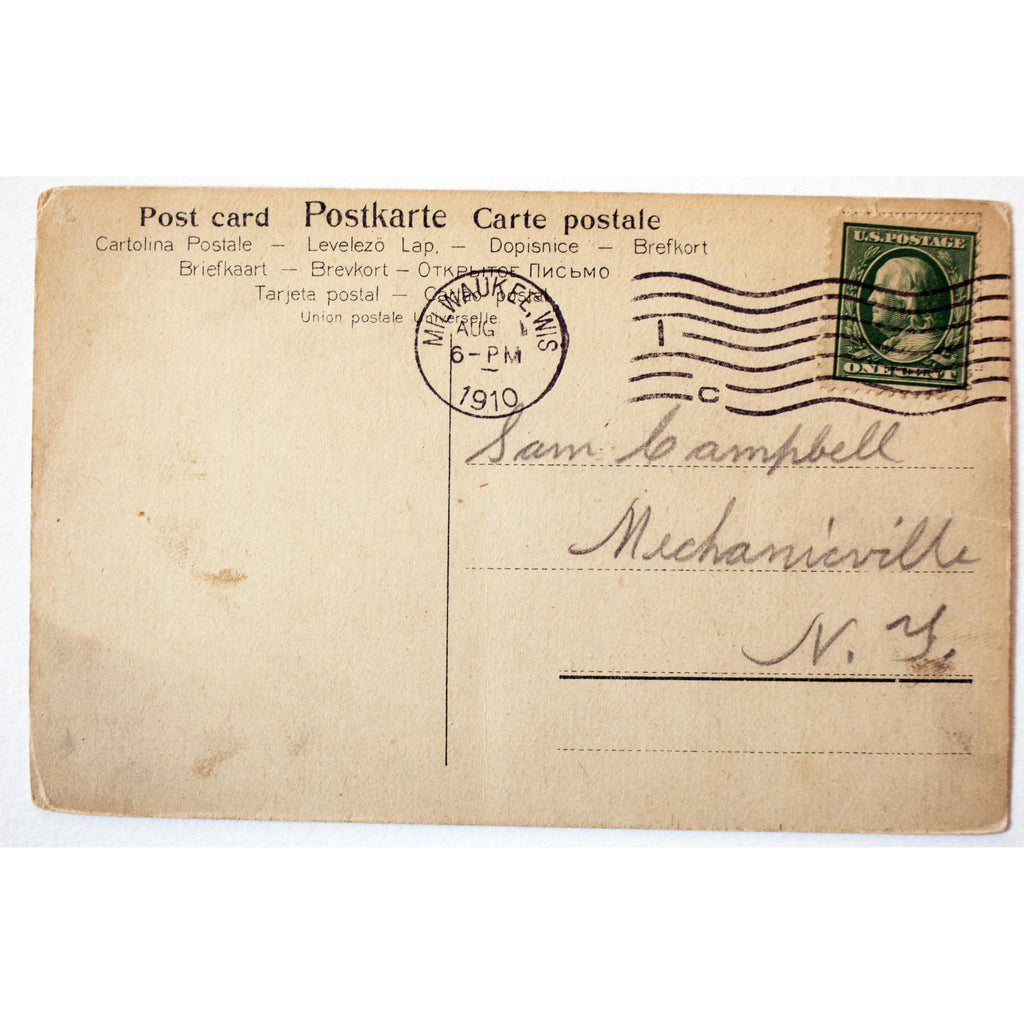 Post card Postkarte Carte postale
Cartolina Postale — Levelezö Lap. — Dopisnice — Brefkort
Briefkaart — Brevkort — Открытое Письмо
Tarjeta postal — postal
Union postale Universelle
U.S. POSTAGE
ONE CENT
MILWAUKEE, WIS
AUG 1
6-PM
1910
1
C
Sam Campbell
Mechanicville
N. Y.